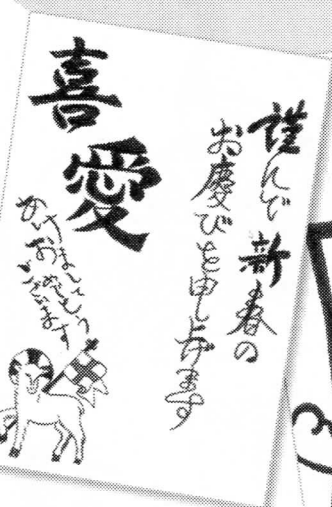 謹んで新春の
お慶びを申し上げます
喜
愛
あけまして
おめでとう
ございます